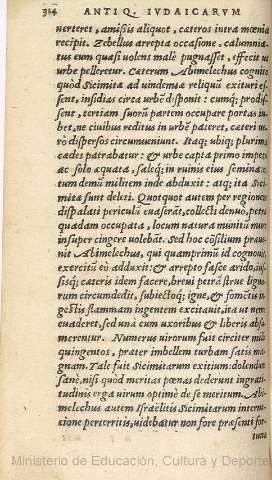 314 ANTIQ. IVDAICARVM
uerteret, amißis aliquot, cæteros intra mœnia
recipit. Zebellus arrepta occasione, calumnia-
tus eum quasi uolens malè pugnasset, effecit ut
urbe pelleretur. Cæterum Abimelechus cognito
quòd Sicimitæ ad uindemiæ reliquũ exituri es-
sent, insidias circa urbẽ disponit: cumq; prodis-
sent, tertiam suorũ partem occupare portas iu-
bet, ne ciuibus reditus in urbẽ pateret, cæteri ue-
rò dispersos circumueniunt. Itaq; ubiq; plurima
cædes patrabatur: & urbe capta primo impetu
ac solo æquata, saleq́; in ruinis eius seminato,
tum demũ militem inde abduxit: atq; ita Sici-
mitæ sunt deleti. Quotquot autem per regionem
dispalati periculũ euaserãt, collecti denuo, petra
quadam occupata, locum natura munitũ muro
insuper cingere uolebãt. Sed hoc cõsilium præue-
nit Abimelechus, qui quamprimũ id cognouit,
exercitũ eò adduxit: & arrepto fasce arido, ius-
sisq; cæteris idem facere, breui petrã strue ligno-
rum circumdedit, subiectoq; igne, & fomẽtis in-
gestis flammam ingentem excitauit, ita ut nemo
euaderet, sed unà cum uxoribus & liberis absu-
merentur. Numerus uirorum fuit circiter mille
quingentos, præter imbellem turbam satis ma-
gnam. Tale fuit Sicimitarum exitium: dolendum
sanè, nisi quòd meritas pœnas dederunt ingrati-
tudinis erga uirum optimè de se meritum. Abi-
melechus autem Israëlitis Sicimitarum interne-
cione perterritis, uidebatur non fore præsenti for-
tuna
Ministerio de Educación, Cultura y Deporte